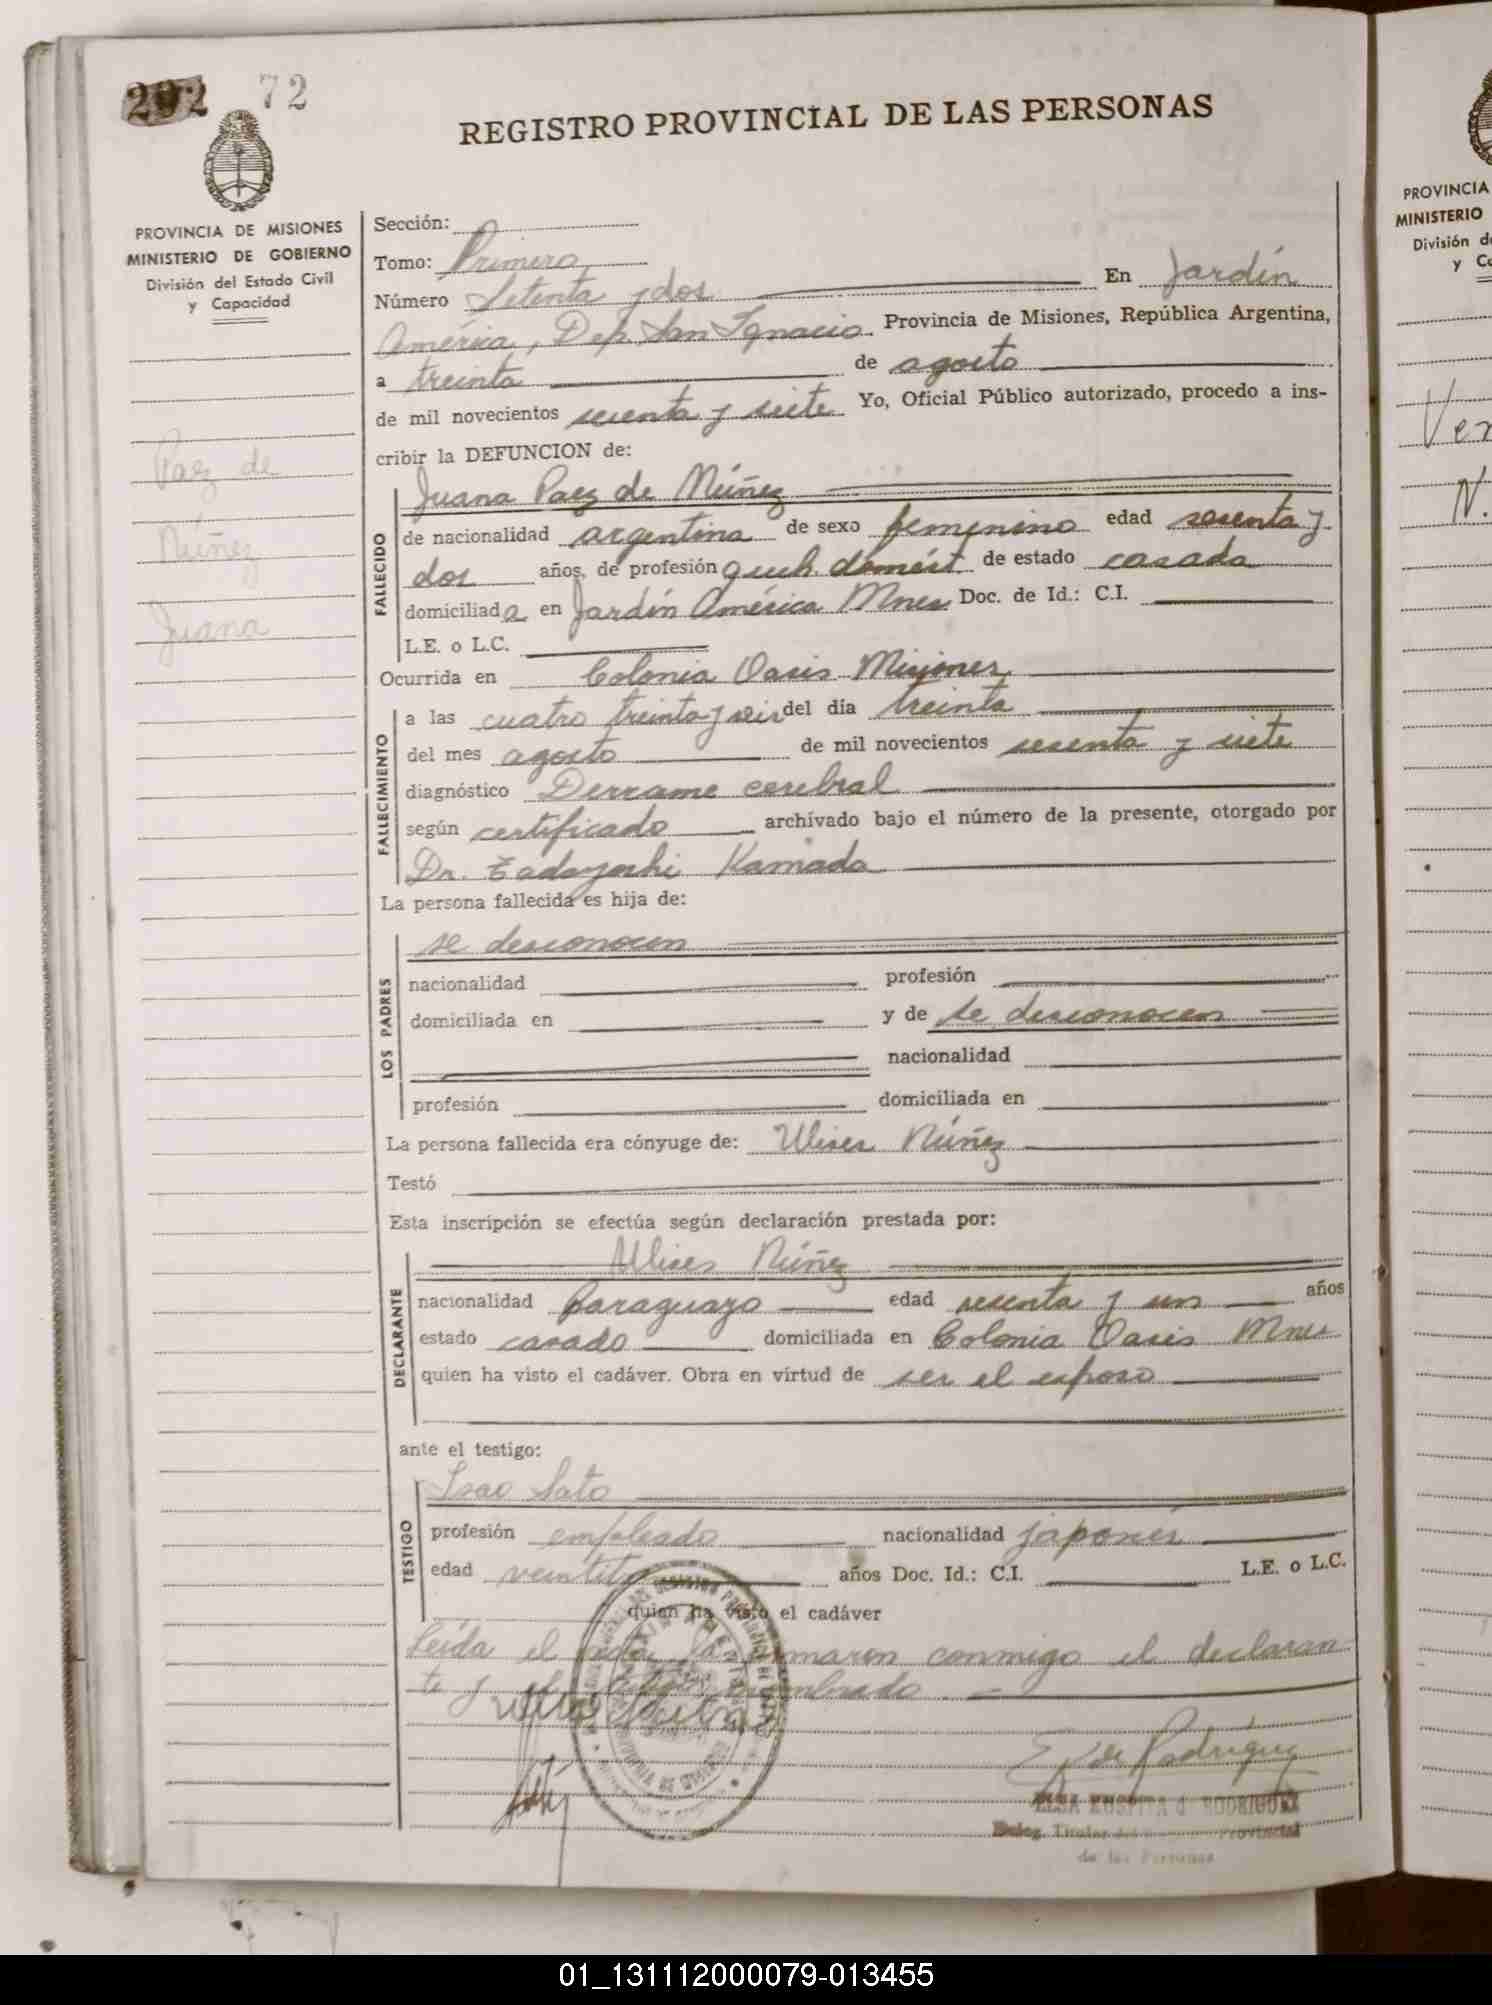 202 72
REGISTRO PROVINCIAL DE LAS PERSONAS
PROVINCIA DE MISIONES
MINISTERIO DE GOBIERNO
División del Estado Civil
y Capacidad
Paez de
Núñez
Juana
Sección:
Tomo: Primero
Número Setenta y dos En Jardín
América, Dep. San Ignacio. Provincia de Misiones, República Argentina,
a treinta de agosto
de mil novecientos sesenta y siete Yo, Oficial Público autorizado, procedo a ins-
cribir la DEFUNCION de:
FALLECIDO
Juana Paez de Núñez
de nacionalidad argentina de sexo femenino edad sesenta y
dos años, de profesión queh. domést. de estado casada
domiciliada en Jardín América Mnes Doc. de Id.: C.I.
L.E. o L.C.
Ocurrida en Colonia Oasis Misiones
FALLECIMIENTO
a las cuatro treinta y seis del día treinta
del mes agosto de mil novecientos sesenta y siete
diagnóstico Derrame cerebral
según certificado archivado bajo el número de la presente, otorgado por
Dr. Tadayoshi Kamada
La persona fallecida es hija de:
LOS PADRES
se desconocen
nacionalidad profesión
domiciliada en y de se desconocen
nacionalidad
profesión domiciliada en
La persona fallecida era cónyuge de: Ulises Núñez
Testó
Esta inscripción se efectúa según declaración prestada por:
DECLARANTE
Ulises Núñez
nacionalidad paraguayo edad sesenta y un años
estado casado domiciliada en Colonia Oasis Mnes
quien ha visto el cadáver. Obra en virtud de ser el esposo
ante el testigo:
TESTIGO
Isao Sato
profesión empleado nacionalidad japonés
edad años Doc. Id.: C.I. L.E. o L.C.
quien ha visto el cadáver
Leída el acta, la firmaron conmigo el declaran-
te y el testigo nombrado.
E. de Rodriguez
Deleg. Titular del Provincial
de las Personas
PROVINCIA
MINISTERIO
División de
y Ca
Ver
N.
01_131112000079-013455